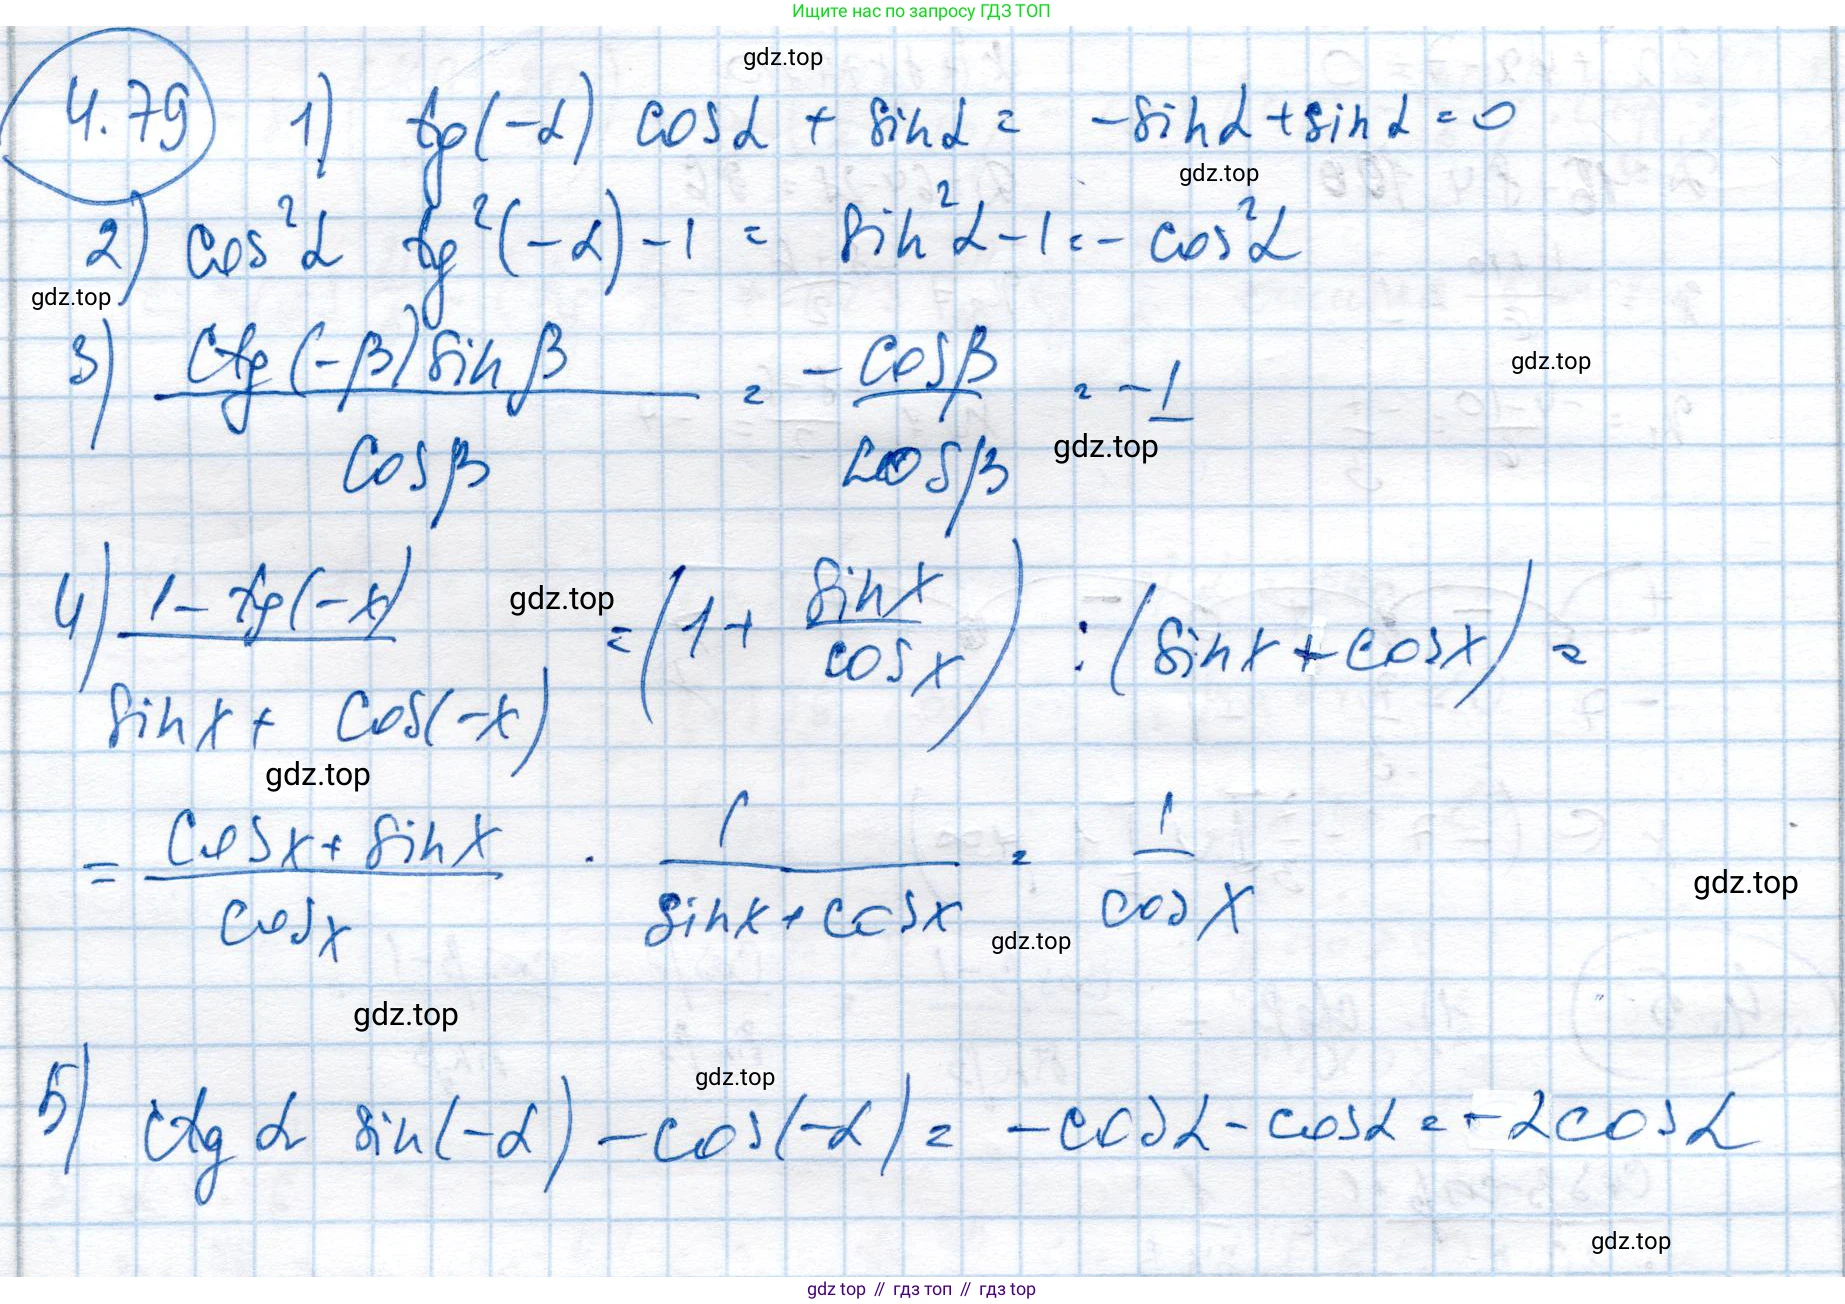 Ищите нас по запросу ГДЗ ТОП
gdz.top
4.79 1) tg(-α) cosα + sinα = -sinα + sinα = 0
gdz.top
2) cos²α tg²(-α) - 1 = sin²α - 1 = - cos²α
gdz.top
3) Ctg(-β) sin β / Cosβ = - cosβ / cosβ = - 1
gdz.top
gdz.top
4) 1 - tg(-x) / sin x + Cos(-x) = (1 + sin x / cos x) : (sin x + cos x) =
gdz.top
gdz.top
= Cos x + sin x / cos x · 1 / sin x + cos x = 1 / cos x
gdz.top
gdz.top
gdz.top
gdz.top
5) ctg α sin(-α) - cos(-α) = - cosα - cosα = -2cosα
gdz.top
gdz top // гдз топ // гдз top